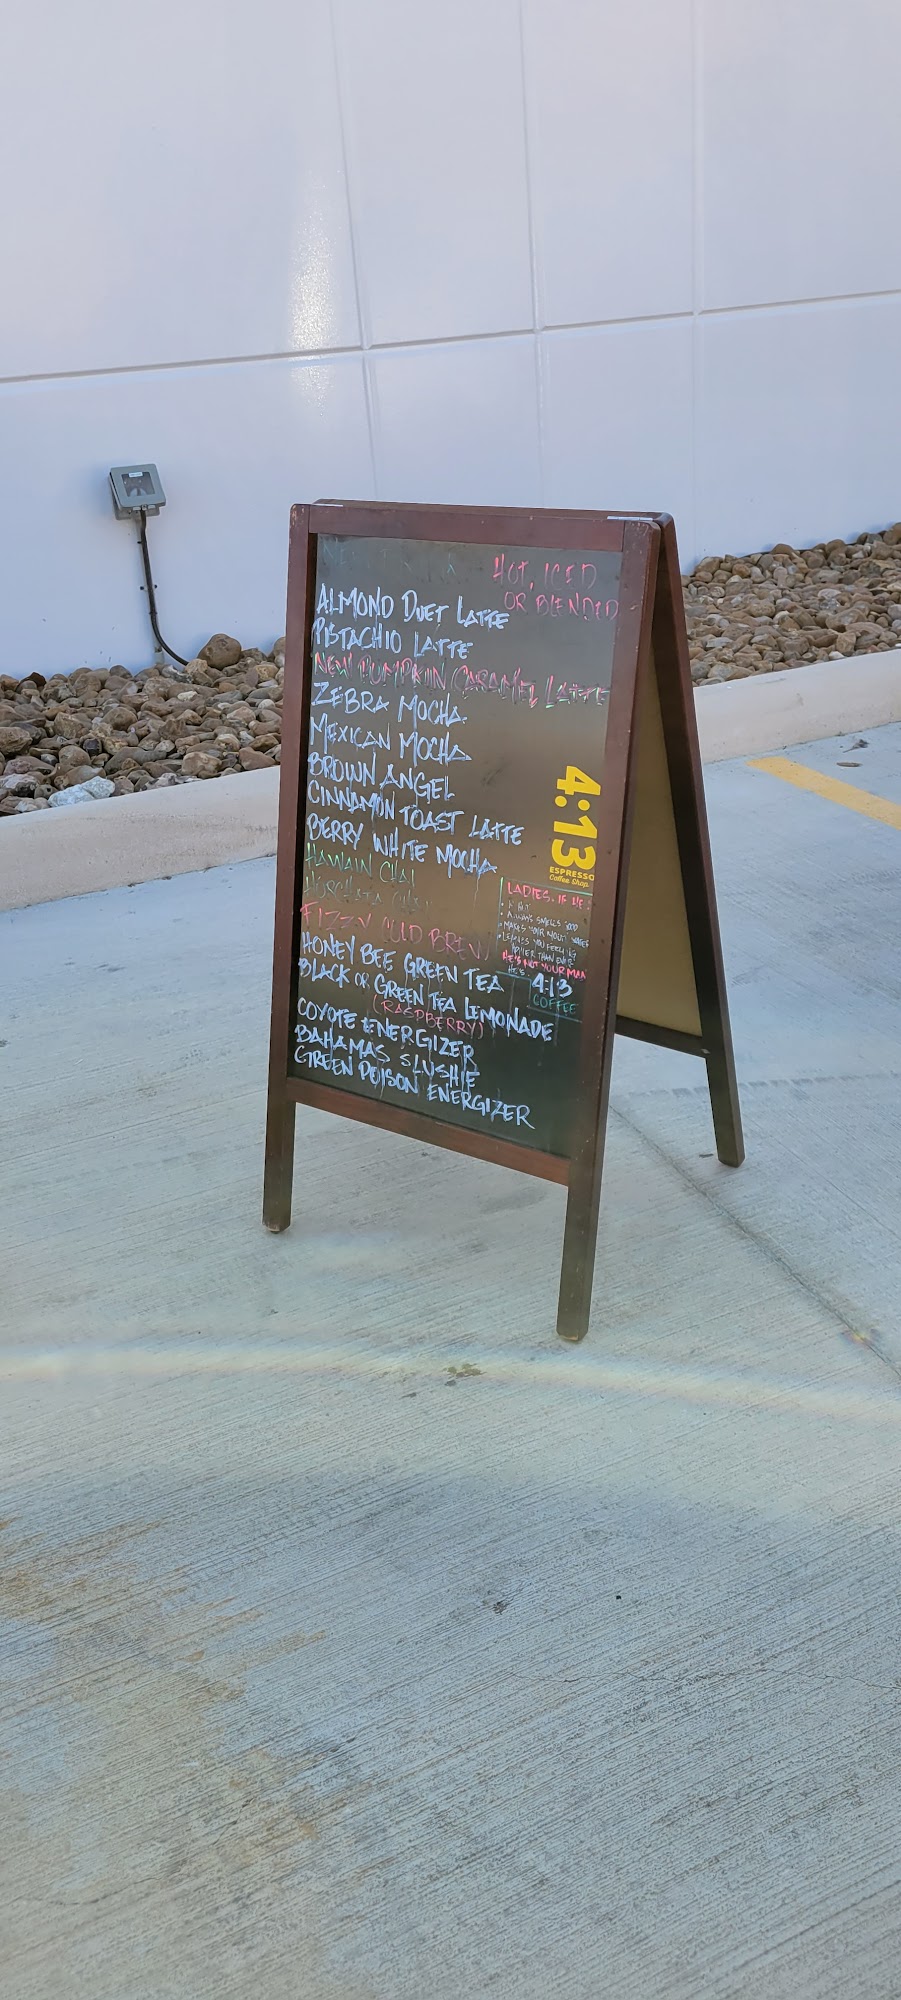 HOT, ICED
OR BLENDED
ALMOND DUET LATTE
PISTACHIO LATTE
NEW! PUMPKIN CARAMEL LATTE
ZEBRA MOCHA
MEXICAN MOCHA
BROWN ANGEL
CINNAMON TOAST LATTE
BERRY WHITE MOCHA
HAWAIN CHAI
HORCHATA CHAI
FIZZY COLD BREW
HONEY BEE GREEN TEA
BLACK OR GREEN TEA LEMONADE
(RASPBERRY)
COYOTE ENERGIZER
BAHAMAS SLUSHIE
GREEN POISON ENERGIZER
4:13
ESPRESSO
Coffee Shop
LADIES, IF HE:
• ALWAYS SMELLS GOOD
• MAKES YOUR MOUTH WATER
• LEAVES YOU FEELING
HOTTER THAN EVER
HE'S NOT YOUR MAN
HE'S 4:13
COFFEE